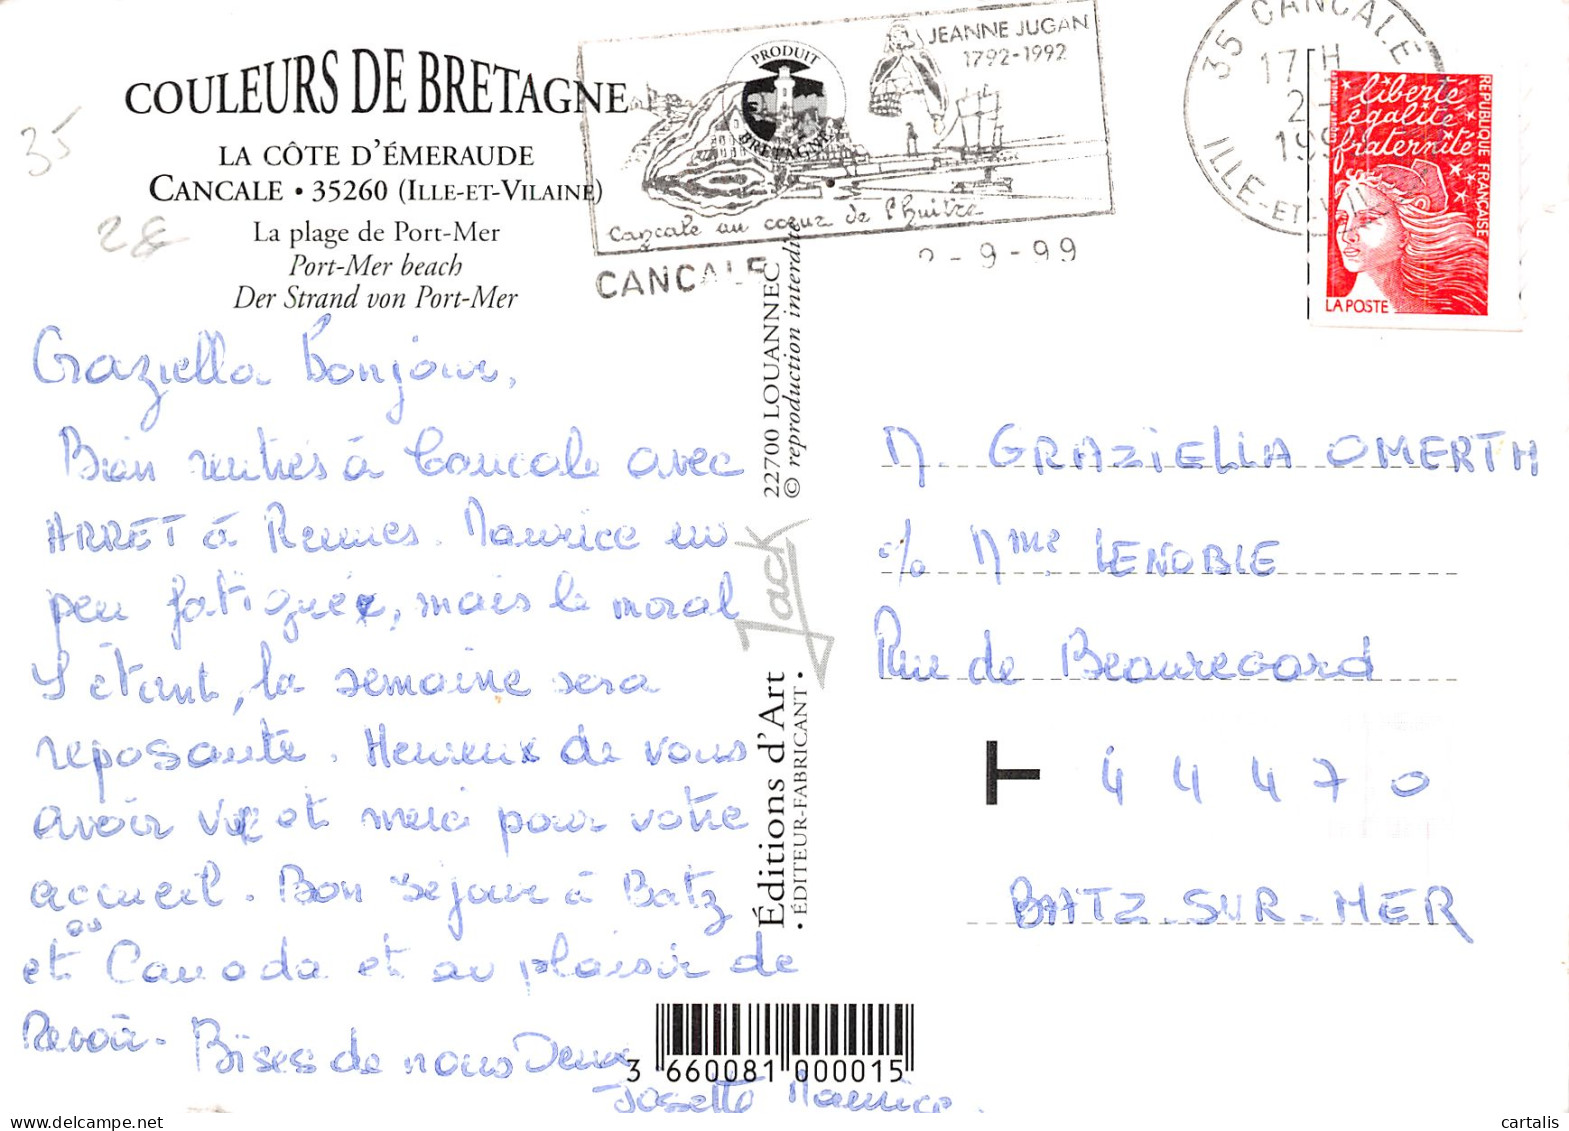 COULEURS DE BRETAGNE
LA CÔTE D'ÉMERAUDE
CANCALE • 35260 (ILLE-ET-VILAINE)
La plage de Port-Mer
Port-Mer beach
Der Strand von Port-Mer
35
28
PRODUIT
BRETAGNE
JEANNE JUGAN
1792-1992
Cancale au coeur de l'huître
CANCALE
2-9-99
35 CANCALE
17 H
2-
199
ILLE-ET-VIL
liberté
égalité
fraternité
REPUBLIQUE FRANÇAISE
LA POSTE
Graziella Bonjour,
Bien rentrés à Cancale avec
ARRET à Rennes. Maurice un
peu fatigué, mais le moral
S'étant, la semaine sera
reposante. Heureux de vous
avoir vu et merci pour votre
accueil. Bon séjour à Batz
et au Canada et au plaisir de
Revoir. Bises de nous Deux
Josette Maurice.
22700 LOUANNEC
© reproduction interdite
Jack
Éditions d'Art
• ÉDITEUR-FABRICANT •
3 660081 000015
M. GRAZIELLA OMERTH
c/o Mme LENOBLE
Rue de Beauregard
44470
BATZ-SUR-MER
cartalis.com